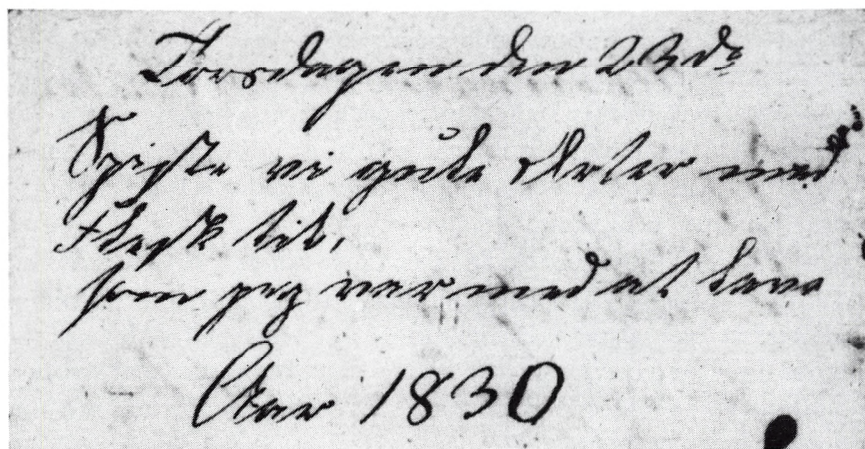 Torsdagen den 23de
Spiste vi gule Erter med
Flesk til,
som jeg var med at lave
Aar 1830